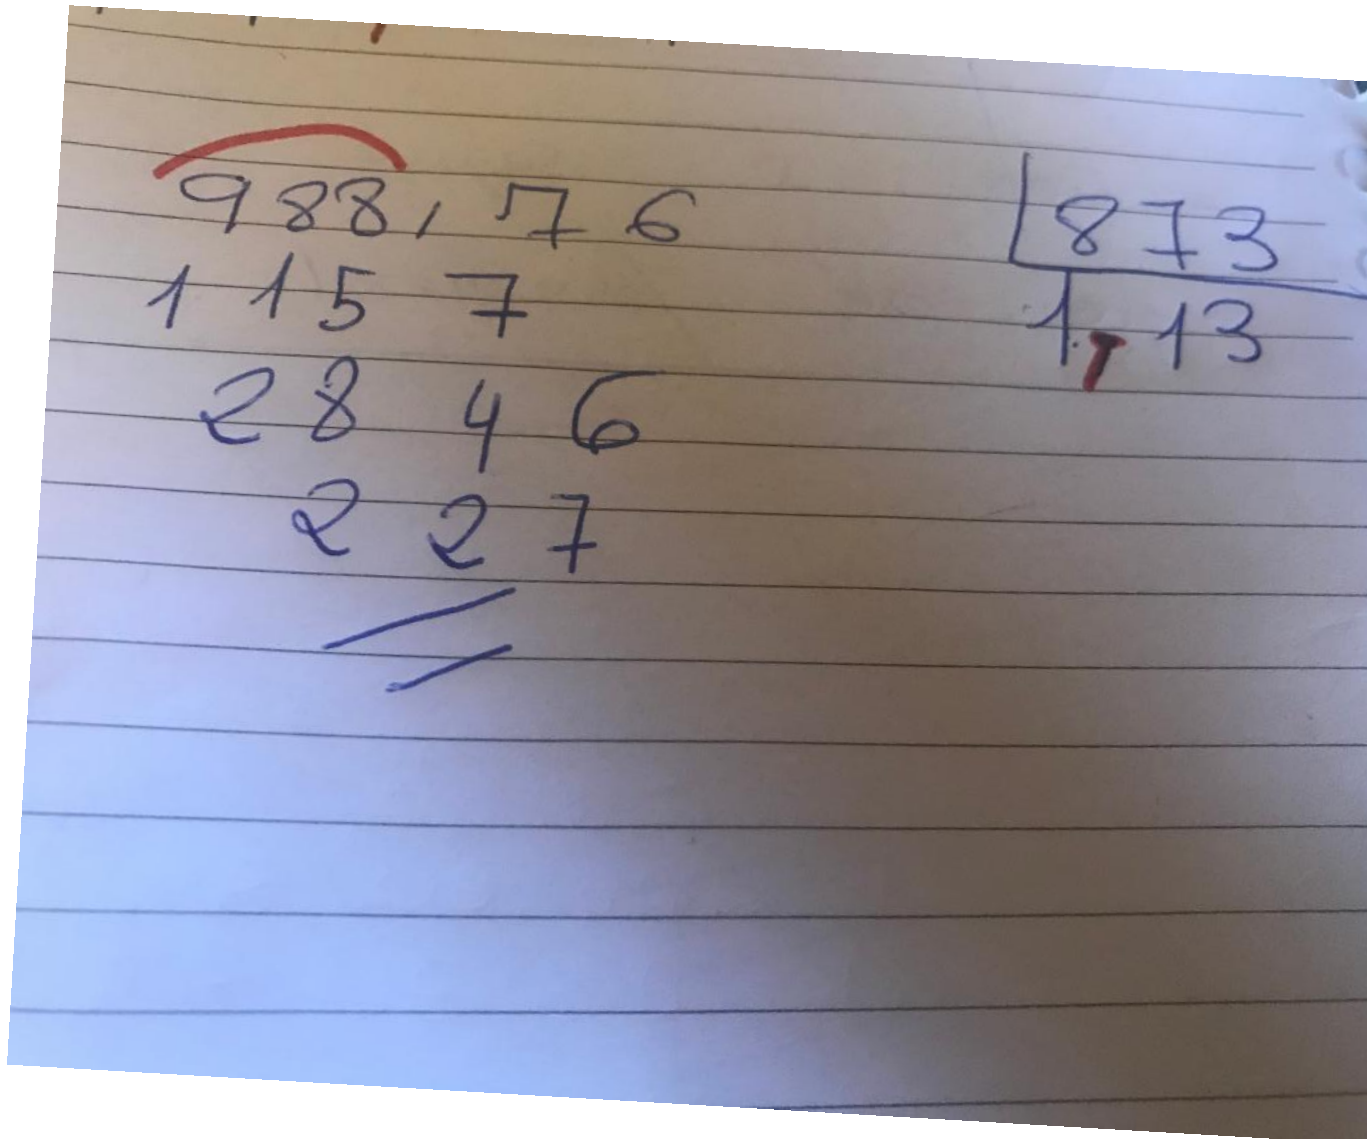 988,76 873
1157 1,13
2846
227